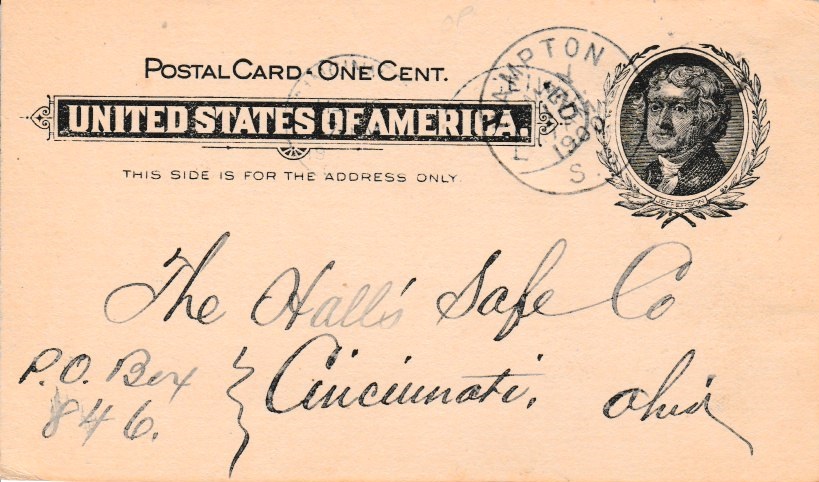 POSTAL CARD · ONE CENT.
UNITED STATES OF AMERICA.
THIS SIDE IS FOR THE ADDRESS ONLY.
AMPTON
1900
S.
JEFFERSON
The Hall's Safe Co
P.O. Box
846.
Cincinnati, Ohio